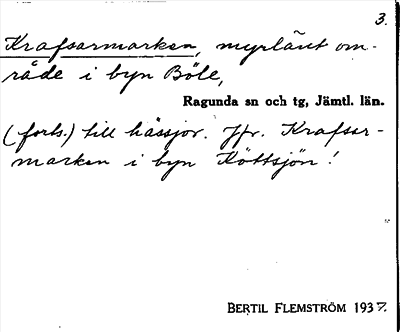 3.
Krafsarmarken, myrlänt om-
råde i byn Böle,
Ragunda sn och tg, Jämtl. län.
(forts.) till hässjor. Jfr. Krafsar-
marken i byn Köttsjön!
BERTIL FLEMSTRÖM 1937.